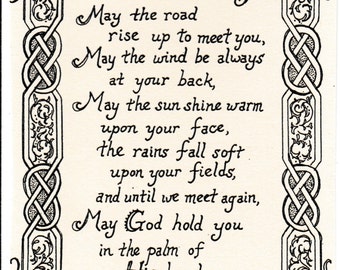 May the road
rise up to meet you,
May the wind be always
at your back,
May the sun shine warm
upon your face,
the rains fall soft
upon your fields,
and until we meet again,
May God hold you
in the palm of